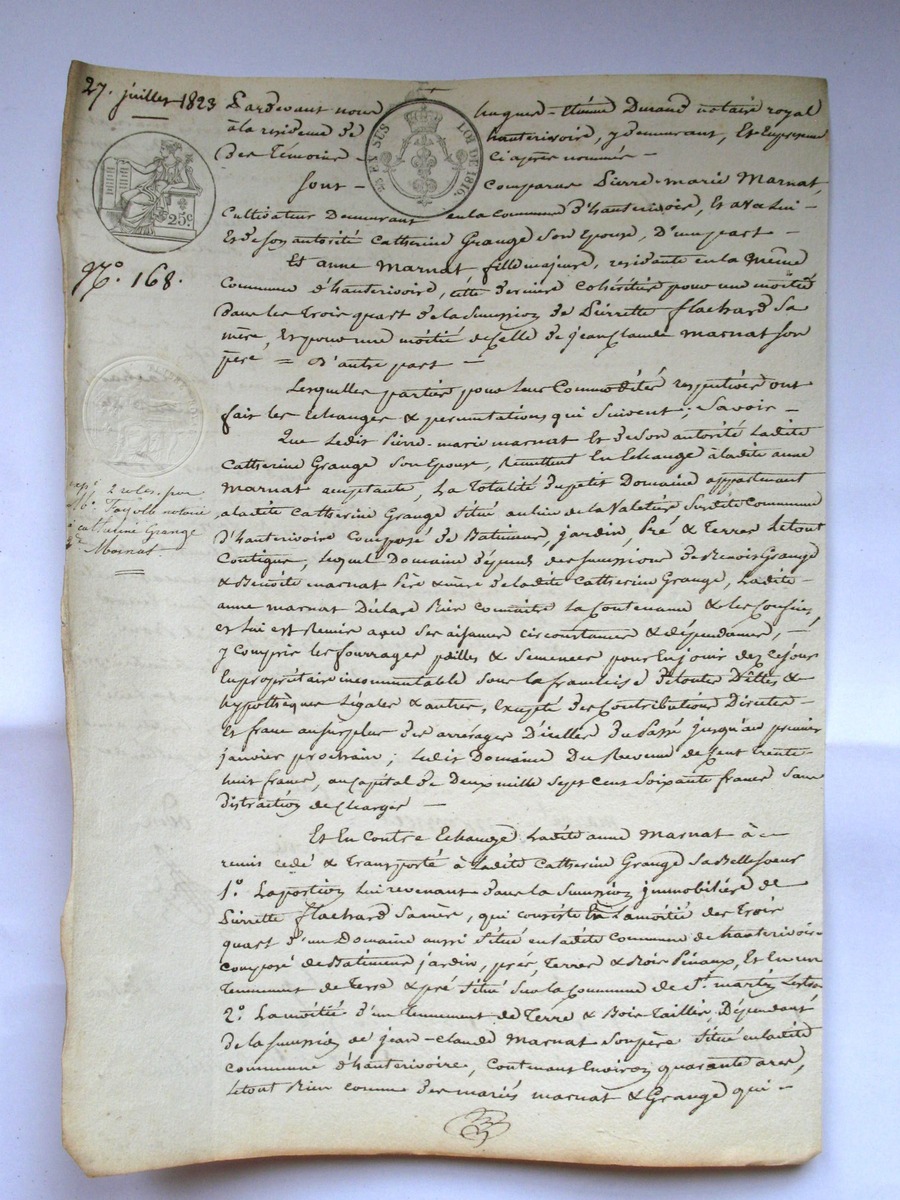 27. juillet 1823
25c.
N.o 168.
2 roles. pour
Fayolle notaire
catherine Grange
Mornat
EN SUS LOI DE 1816.
Pardevant nous hugues-Etienne Durand notaire royal
à la residence de hauterivoire, y demeurant, Et En presence
Des Témoins ci après nommés
Sont comparus Pierre-marie Marnat,
cultivateur Demeurant en la commune d'hauterivoire, Et avec lui
Et de son autorité Catherine Grange Son Epouse, D'une part
Et anne Marnat fille majeure, residente en la Même
commune d'hauterivoire, cette derniere Cohéritiere pour une moitié
Dans les trois quart de la Succession de Pierrette flachard Sa
mère, Et pour une moitié de celle de jean Claude Marnat Son
père = D'autre part
Lesquelles parties pour leur Commodités respectives ont
fait les Echanges & permutations qui Suivent; Savoir
Que Ledit Pierre-marie marnat Et de Son autorité Ladite
Catherine Grange Son Epouse, Remettent En Echange à ladite anne
Marnat acceptante, La Totalité du petit Domaine appartenant
a ladite Catherine Grange Situé au lieu de la Valetière Susdite Commune
d'hauterivoire Composé de Batiment, jardin, Pré & Terres Le tout
Contigus, Lequel Domaine dépend des Successions de Benoit Grange
& Benoite marnat Père & mère de ladite Catherine Grange, Ladite
anne marnat Déclare Bien connaitre La Contenance & les Confins,
et Lui est Remis avec Ses aisances circonstances & dépendances,
y compris les fourrages pailles & Semences pour En jouir dez cejour
En propriétaire incommutable Sous la franchise de toutes Dettes &
hypothèques Légales & autres, Excepté des Contributions Directes
Et franc au surplus des arrérages D'icelles du Passé jusqu'au premier
janvier prochain; Ledit Domaine Du Revenu de Cent trente
huit francs, au Capital de Deux mille Sept cent Soixante francs Sans
Distraction de Charges
Et En Contre Echange Ladite anne Marnat à
remis cédé & transporté à Ladite Catherine Grange Sa Belle Soeur
1.o La portion Lui revenant dans la Succession immobilière de
Pierrette flachard Sa mère, qui consiste En La moitié des Trois
quart d'un Domaine aussi Situé en ladite Commune de hauterivoire
composé de Batiment jardin, prés, Terres & Bois Pinaux, Et En un
Tenement de Terre & pré Situé Sur la Commune de St. martin Lestra
2.o La moitié d'un Tenement de Terre & Bois Taillis, Dépendant
de la Succession de jean-claude Marnat Son père Situé en ladite
commune d'hauterivoire, Contenant Environ quarante ares,
Le tout Bien connu des mariés marnat & Grange qui